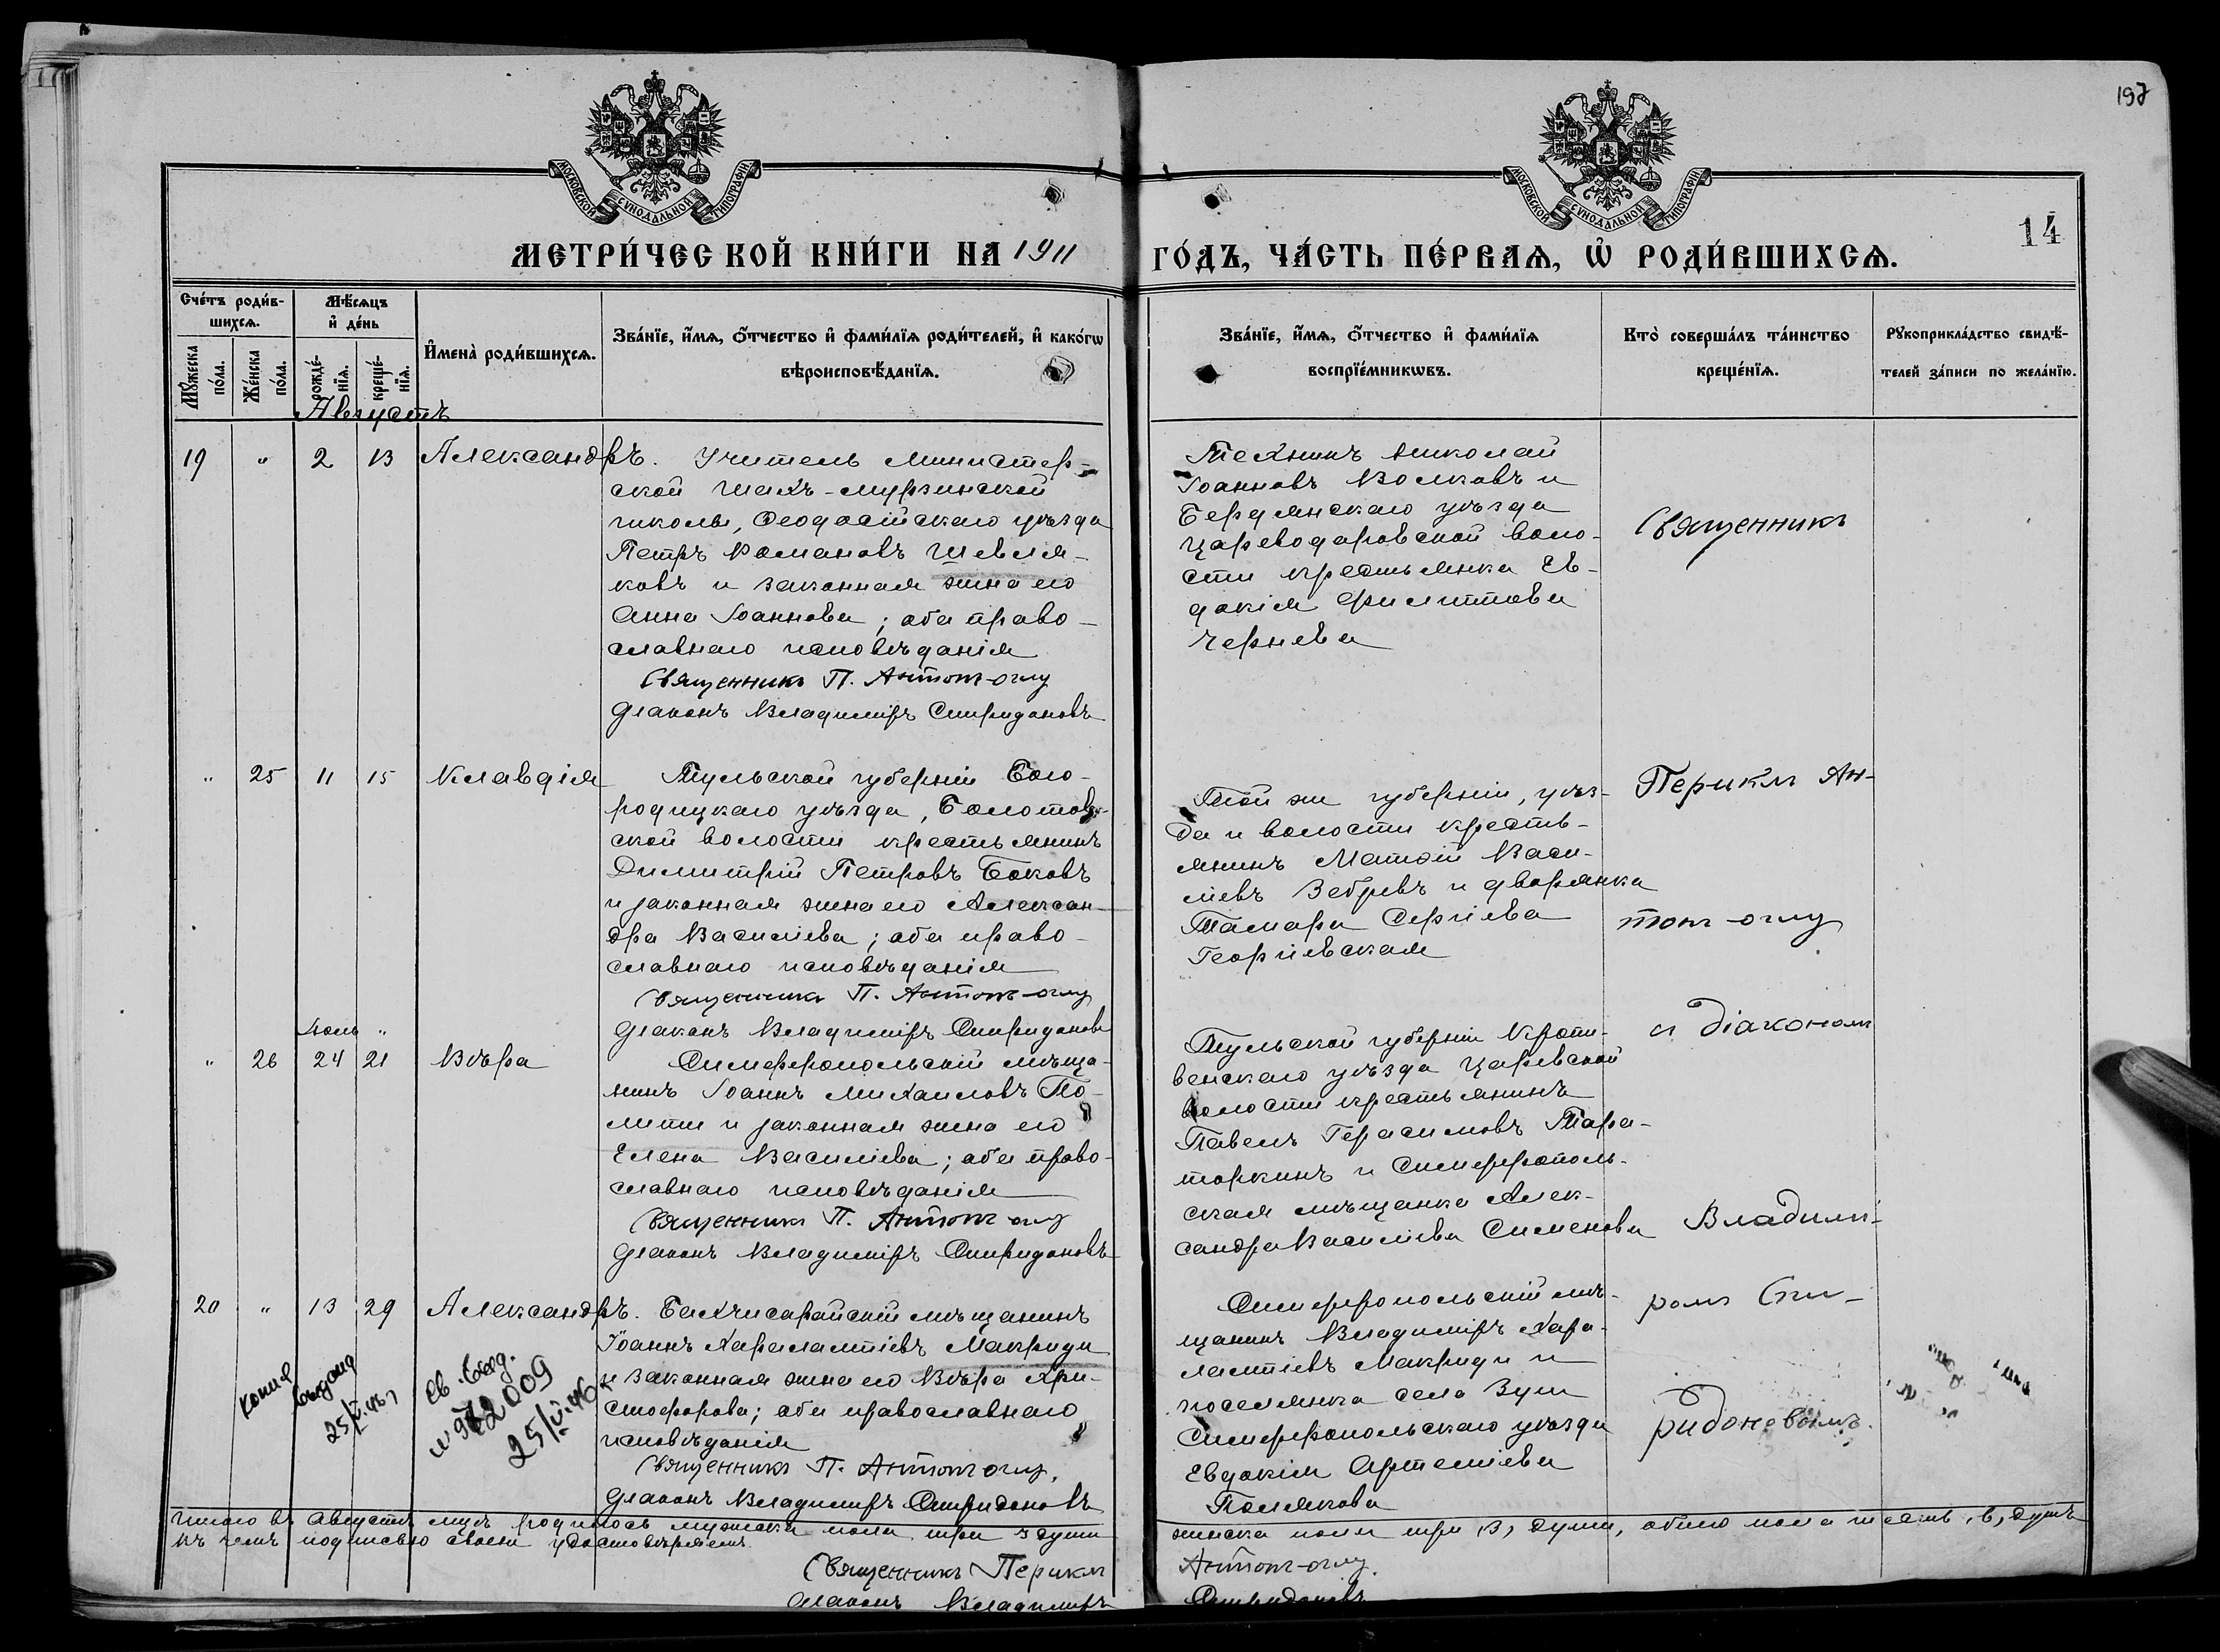 197
МОСКОВСКОЙ СѴНОДАЛЬНОЙ ТИПОГРАФІИ
МОСКОВСКОЙ СѴНОДАЛЬНОЙ ТИПОГРАФІИ
14
МЕТРИ́ЧЕСКОЙ КНИ́ГИ НА 1911 ГО́ДЪ, ЧА́СТЬ ПЕ́РВАѦ, Ѡ҆ РОДИ́ВШИХСѦ.
Сче́тъ роди́в-
шихсѧ.
Мꙋжеска по́ла.
Же́нска по́ла.
Мѣ́сѧцъ
и҆ де́нь
рожде́-
нїѧ.
креще́-
нїѧ.
И҆мена̀ роди́вшихсѧ.
Зва́нїе, и҆́мѧ, ѻ҆́тчество и҆ фами́лїѧ роди́телей, и҆ како́гѡ
вѣроисповѣ́данїѧ.
Зва́нїе, и҆́мѧ, ѻ҆́тчество и҆ фами́лїѧ
воспрїе́мникѡвъ.
Кто̀ соверша́лъ та́инство
креще́нїѧ.
Рꙋкоприкла́дство свидѣ́-
телей за́писи по жела́нїю.
Августъ
19 " 2 13 Александръ.
Учитель Министер-
ской Шахъ-мурзинской
школы, Феодосійскаго уѣзда
Петръ Романовъ Шевля-
ковъ и законная жена его
Анна Іоаннова; оба право-
славнаго исповѣданія
Священникъ П. Антонъ-оглу
Діаконъ Владиміръ Спиридоновъ
Техникъ Николай
Іоанновъ Волковъ и
Бердянскаго уѣзда
Цареводаровской воло-
сти крестьянка Ев-
докія Филиппова
Чернева
Священникъ
" 25 11 15 Клавдія
Тульской губерніи Бого-
родицкаго уѣзда, Болотов-
ской волости крестьянинъ
Димитрій Петровъ Боковъ
и законная жена его Алексан-
дра Василіева; оба право-
славнаго исповѣданія
Священникъ П. Антонъ-оглу
Діаконъ Владиміръ Спиридоновъ
Той же губерніи, уѣз-
да и волости кресть-
янинъ Матфій Васи-
ліевъ Зебревъ и дворянка
Тамара Сергіева
Георгіевская
Периклъ Ан-
тонъ-оглу
Іюль "
" 26 24 21 Вѣра
Симферопольскій мѣща-
нинъ Іоаннъ Михаиловъ По-
лити и законная жена его
Елена Василіева; оба право-
славнаго исповѣданія
Священникъ П. Антонъ-оглу
Діаконъ Владиміръ Спиридоновъ
Тульской губерніи Крапи-
венскаго уѣзда Царевской
волости крестьянинъ
Павелъ Герасимовъ Тара-
торкинъ и Симферополь-
ская мѣщанка Алек-
сандра Василіева Сименова
и діакономъ
Владимі-
20 " 13 29 Александръ.
Бахчисарайскій мѣщанинъ
Іоаннъ Харалампіевъ Макриди
и законная жена его Вѣра Хри-
стофорова; оба православнаго
исповѣданія
Священникъ П. Антонъ-оглу.
Діаконъ Владиміръ Спиридоновъ
Симферопольскій мѣ-
щанинъ Владиміръ Хара-
лампіевъ Макриди и
поселянка села Зуи
Симферопольскаго уѣзда
Евдокія Артеміева
Полякова
ромъ Спи-
ридоновымъ.
копия выдана
25/V.46 г
25/V.46 г
Итого въ Августѣ мцѣ родилось мужеска пола три 3 души женска пола три, 3, души, обоего пола шесть, 6, душъ
въ чемъ подписью своею удостовѣряемъ.
Священникъ Периклъ Антонъ-оглу.
Діаконъ Владиміръ Спиридоновъ